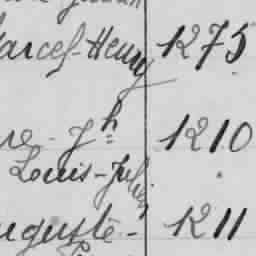 arcel-Henry 1275
re-Jh 1210
Louis-Julien
uguste- 1211